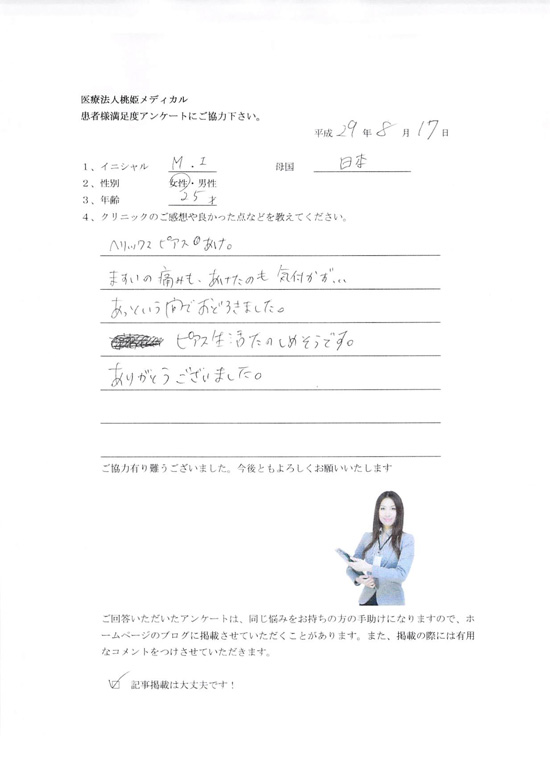 医療法人桃姫メディカル
患者様満足度アンケートにご協力下さい。
平成 29 年 8 月 17 日
1、イニシャル M.I 母国 日本
2、性別 女性・男性
3、年齢 25才
4、クリニックのご感想や良かった点などを教えてください。
ヘリックス ピアスあけ。
ますいの痛みも、あけたのも 気付かが...
あっという間でおどろきました。
ピアス生活たのしめそうです。
ありがとうございました。
ご協力有り難うございました。今後ともよろしくお願いいたします
ご回答いただいたアンケートは、同じ悩みをお持ちの方の手助けになりますので、ホ
ームページのブログに掲載させていただくことがあります。また、掲載の際には有用
なコメントをつけさせていただきます。
記事掲載は大丈夫です！